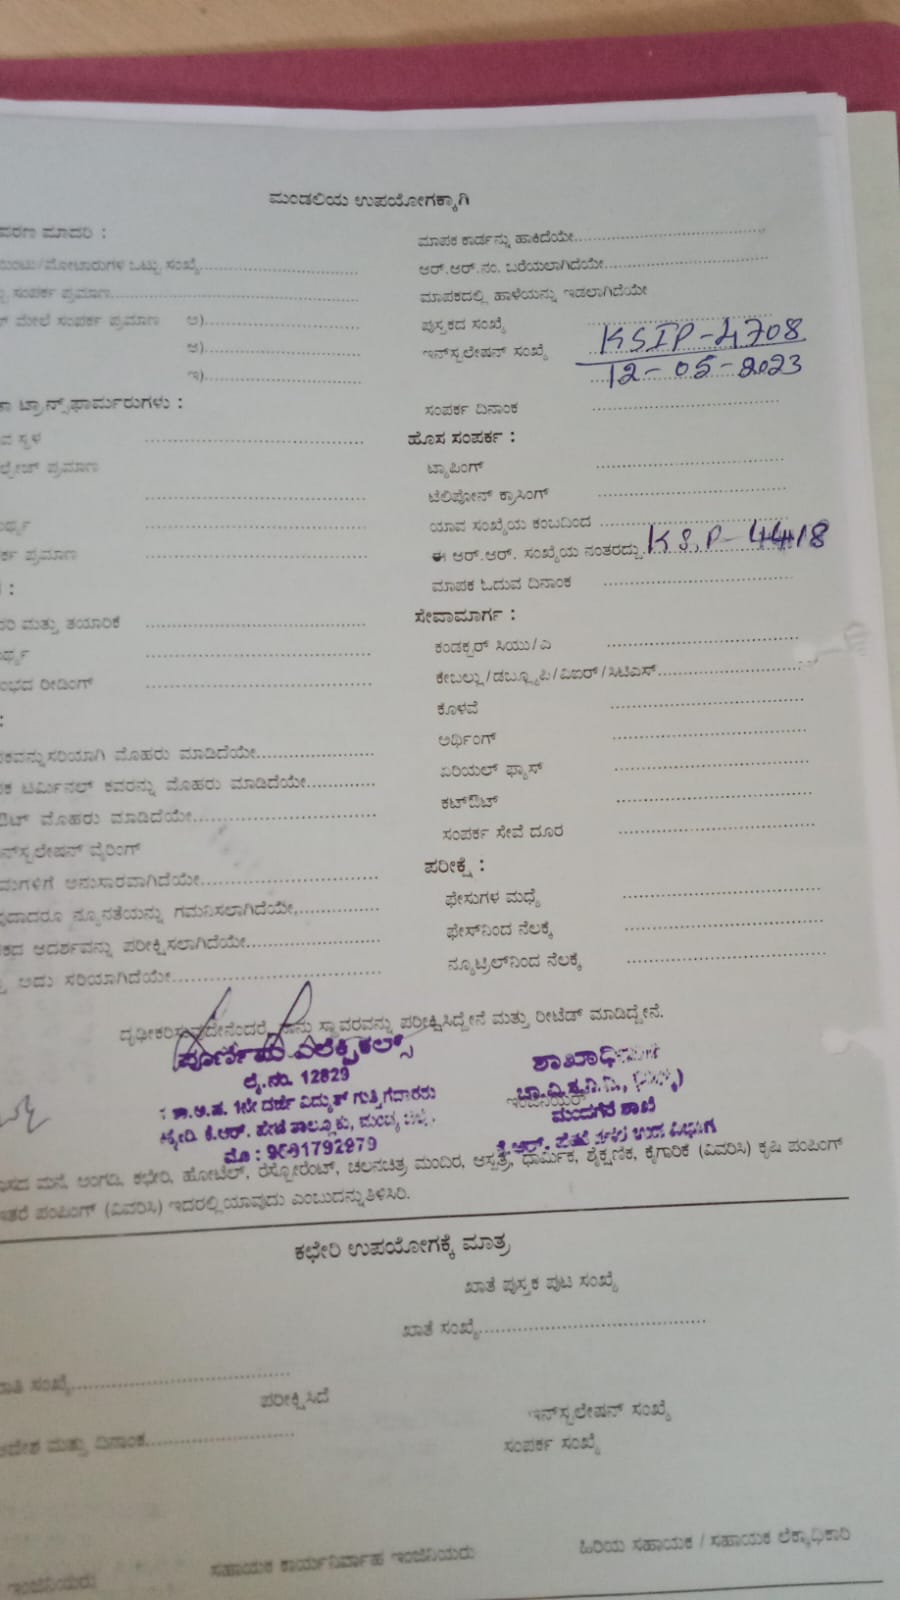 ಮಂಡಲಿಯ ಉಪಯೋಗಕ್ಕಾಗಿ
ವರಣ ಮಾದರಿ :
/ಮೋಟಾರುಗಳ ಒಟ್ಟು ಸಂಖ್ಯೆ
ಸಂಪರ್ಕ ಪ್ರಮಾಣ
ಮೇಲೆ ಸಂಪರ್ಕ ಪ್ರಮಾಣ ಅ)
ಆ)
ಇ)
ಟ್ರಾನ್ಸ್‌ಫಾರ್ಮರುಗಳು :
ಸ್ಥಳ
ಪ್ರಮಾಣ
ಪ್ರಮಾಣ
ಮತ್ತು ತಯಾರಿಕೆ
ರೀಡಿಂಗ್
ಸರಿಯಾಗಿ ಮೊಹರು ಮಾಡಿದೆಯೇ
ಟರ್ಮಿನಲ್ ಕವರನ್ನು ಮೊಹರು ಮಾಡಿದೆಯೇ
ಮೊಹರು ಮಾಡಿದೆಯೇ
ವೈರಿಂಗ್
ಅನುಸಾರವಾಗಿದೆಯೇ
ನ್ಯೂನತೆಯನ್ನು ಗಮನಿಸಲಾಗಿದೆಯೇ
ಆದರ್ಶವನ್ನು ಪರೀಕ್ಷಿಸಲಾಗಿದೆಯೇ
ಅದು ಸರಿಯಾಗಿದೆಯೇ
ಮಾಪಕ ಕಾರ್ಡನ್ನು ಹಾಕಿದೆಯೇ
ಆರ್.ಆರ್.ನಂ. ಬರೆಯಲಾಗಿದೆಯೇ
ಮಾಪಕದಲ್ಲಿ ಹಾಳೆಯನ್ನು ಇಡಲಾಗಿದೆಯೇ
ಪುಸ್ತಕದ ಸಂಖ್ಯೆ
ಇನ್‌ಸ್ಟಲೇಷನ್ ಸಂಖ್ಯೆ KSIP-4708
12-05-2023
ಸಂಪರ್ಕ ದಿನಾಂಕ
ಹೊಸ ಸಂಪರ್ಕ :
ಟ್ಯಾಪಿಂಗ್
ಟೆಲಿಪೋನ್ ಕ್ರಾಸಿಂಗ್
ಯಾವ ಸಂಖ್ಯೆಯ ಕಂಬದಿಂದ
ಈ ಆರ್.ಆರ್. ಸಂಖ್ಯೆಯ ನಂತರದ್ದು
ಮಾಪಕ ಓದುವ ದಿನಾಂಕ
ಸೇವಾಮಾರ್ಗ :
ಕಂಡಕ್ಟರ್ ಸಿಯು/ಎ
ಕೇಬಲ್ಲು/ಡಬ್ಲ್ಯೂಪಿ/ವಿಐಆರ್/ಸಿಟಿಎಸ್
ಕೊಳವೆ
ಅರ್ಥಿಂಗ್
ಏರಿಯಲ್ ಫ್ಯೂಸ್
ಕಟ್‌ಔಟ್
ಸಂಪರ್ಕ ಸೇವೆ ದೂರ
ಪರೀಕ್ಷೆ :
ಫೇಸುಗಳ ಮಧ್ಯೆ
ಫೇಸ್‌ನಿಂದ ನೆಲಕ್ಕೆ
ನ್ಯೂಟ್ರಿಲ್‌ನಿಂದ ನೆಲಕ್ಕೆ
ದೃಢೀಕರಿಸುವುದೇನೆಂದರೆ, ನಾನು ಸ್ಥಾವರವನ್ನು ಪರೀಕ್ಷಿಸಿದ್ದೇನೆ ಮತ್ತು ರೀಟೆಡ್ ಮಾಡಿದ್ದೇನೆ.
ಎಲೆಕ್ಟ್ರಿಕಲ್ಸ್
ಲೈ.ನಂ. 12829
1ನೇ ದರ್ಜೆ ವಿದ್ಯುತ್ ಗುತ್ತಿಗೆದಾರರು
ಕೆ.ಆರ್. ಪೇಟೆ ತಾಲ್ಲೂಕು, ಮಂಡ್ಯ
ಇಂಜಿನಿಯರ್
ಮಂದಗೆರೆ ಶಾಖೆ
ಮನೆ, ಅಂಗಡಿ, ಕಛೇರಿ, ಹೋಟೆಲ್, ರೆಸ್ಟೋರೆಂಟ್, ಚಲನಚಿತ್ರ ಮಂದಿರ, ಆಸ್ಪತ್ರೆ, ಧಾರ್ಮಿಕ, ಶೈಕ್ಷಣಿಕ, ಕೈಗಾರಿಕೆ (ವಿವರಿಸಿ) ಕೃಷಿ ಪಂಪಿಂಗ್
ಇತರೆ ಪಂಪಿಂಗ್ (ವಿವರಿಸಿ) ಇದರಲ್ಲಿ ಯಾವುದು ಎಂಬುದನ್ನು ತಿಳಿಸಿರಿ.
ಕಛೇರಿ ಉಪಯೋಗಕ್ಕೆ ಮಾತ್ರ
ಖಾತೆ ಪುಸ್ತಕ ಪುಟ ಸಂಖ್ಯೆ
ಖಾತೆ ಸಂಖ್ಯೆ
ಸಂಖ್ಯೆ
ಪರೀಕ್ಷಿಸಿದೆ
ಇನ್‌ಸ್ಟಲೇಷನ್ ಸಂಖ್ಯೆ
ಮತ್ತು ದಿನಾಂಕ
ಸಂಪರ್ಕ ಸಂಖ್ಯೆ
ಇಂಜಿನಿಯರು ಸಹಾಯಕ ಕಾರ್ಯನಿರ್ವಾಹ ಇಂಜಿನಿಯರು ಹಿರಿಯ ಸಹಾಯಕ / ಸಹಾಯಕ ಲೆಕ್ಕಾಧಿಕಾರಿ